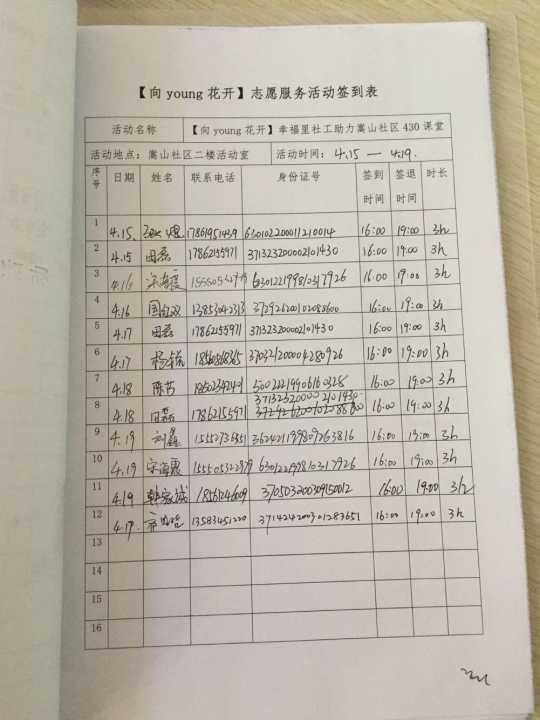 【向 young 花开】志愿服务活动签到表
活动名称 【向 young 花开】幸福里社工助力嵩山社区 430 课堂
活动地点：嵩山社区二楼活动室 活动时间： 4.15 — 4.19.
序号 日期 姓名 联系电话 身份证号 签到时间 签退时间 时长
1 4.15. 17861951439 630102200011210014 16:00 19:00 3h
2 4.15 田磊 17862155971 371323200002101430 16:00 19:00 3h
3 4.16 宋海震 630122199810317926 16:00 19:00 3h
4 4.16 13853042313 372926200102088600 16:00 19:00 3h
5 4.17 田磊 17862155971 371323200002101430 16:00 19:00 3h
6 4.17 杨锐 370321200004280926 16:00 19:00 3h
7 4.18 陈茜 50022219906160328 16:00 19:00 3h
8 4.18 田磊 17862155971 371323200002101430 16:00 19:00 3h
9 4.19 刘鑫 15552736351 362421199809263816 16:00 19:00 3h
10 4.19 宋海震 15550532979 630122199810317926 16:00 19:00 3h
11 4.19 韩家诚 370503200309150012 16:00 19:00 3h
12 4.19 13583451220 371424200301283651 16:00 19:00 3h
13
14
15
16